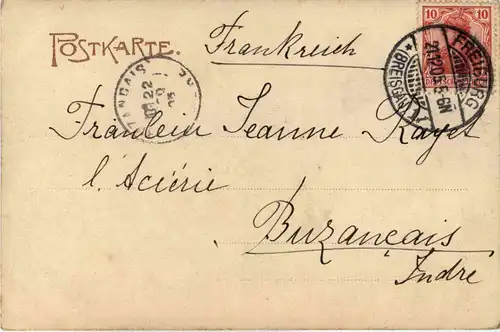 POSTKARTE.
Frankreich
10 10
FREIBURG
* (BREISGAU) 1
22
Fräulein Jeanne Kayet
l'Aciérie
Buzançais
Indre